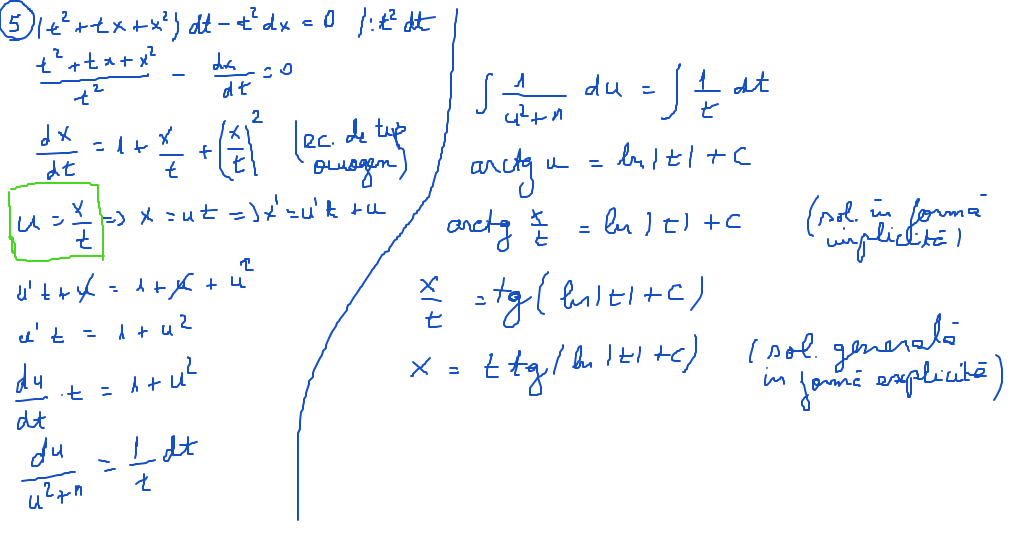 5) (t² + tx + x²) dt - t² dx = 0 /: t² dt
(t² + tx + x²)/t² - dx/dt = 0
dx/dt = 1 + x/t + (x/t)² (ec. de tip omogen)
u = x/t => x = ut => x' = u't + u
u't + u = 1 + u + u²
u't = 1 + u²
du/dt · t = 1 + u²
du/(u²+1) = 1/t dt
∫ 1/(u²+1) du = ∫ 1/t dt
arctg u = ln|t| + C
arctg x/t = ln|t| + C (sol. în formă implicită)
x/t = tg(ln|t| + C)
x = t tg(ln|t| + C) (sol. generală în formă explicită)